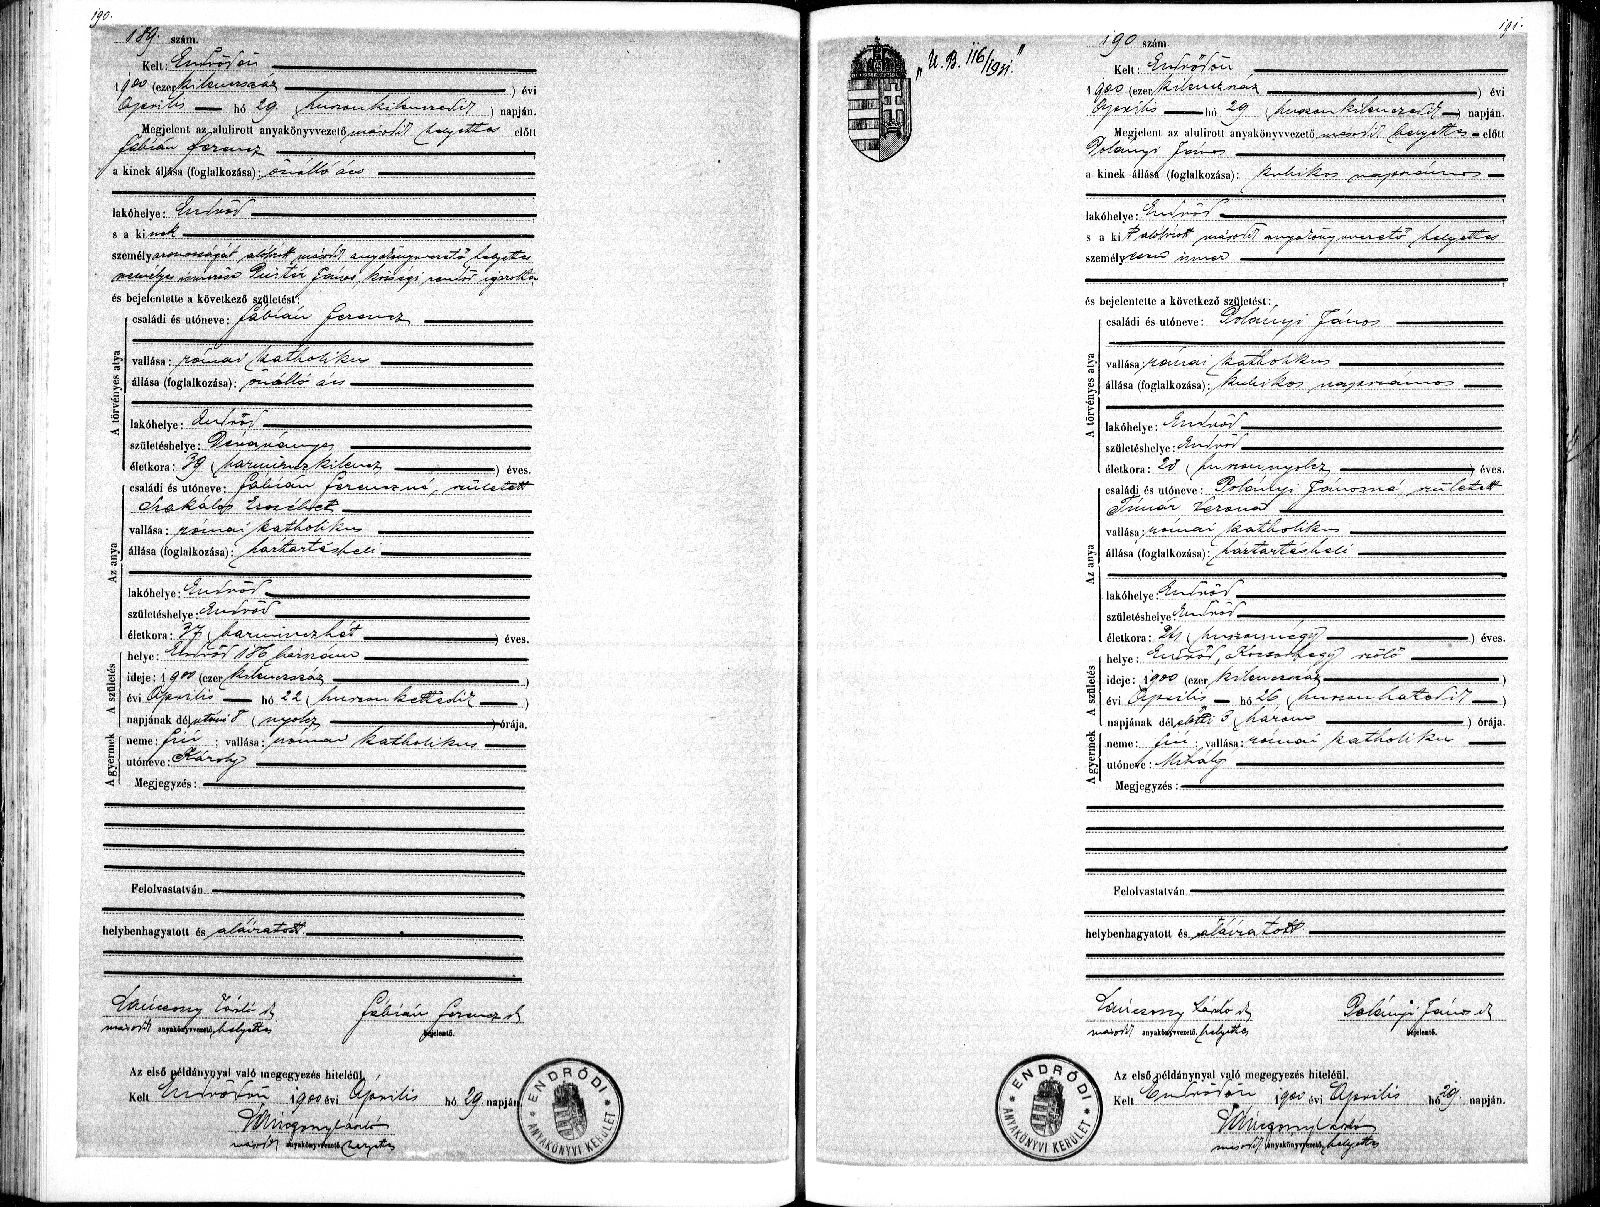 190.
189. szám.
Kelt: Endrődön
1900 (ezer kilenczszáz) évi
Április hó 29 (huszonkilenczedik) napján.
Megjelent az alulirott anyakönyvvezető másodh helyettes előtt
Fábián Ferencz
a kinek állása (foglalkozása): önálló ács
lakóhelye: Endrőd
s a kinek
személyazonosságát alulirott másodh anyakönyvvezető helyettes
személyes ismerőse János községi rendőr igazolta
és bejelentette a következő születést:
A törvényes atya
családi és utóneve: Fábián Ferencz
vallása: római katholikus
állása (foglalkozása): önálló ács
lakóhelye: Endrőd
születéshelye: Dévaványa
életkora: 39 (harminczkilencz) éves.
Az anya
családi és utóneve: Fábián Ferenczné, született
Szakálos Erzsébet
vallása: római katholikus
állása (foglalkozása): háztartásbeli
lakóhelye: Endrőd
születéshelye: Endrőd
életkora: 37 (harminczhét) éves.
A születés
helye: Endrőd 186 házszám
ideje: 1900 (ezer kilenczszáz)
évi Április hó 22 (huszonkettedik)
napjának délutáni 8 (nyolcz) órája.
A gyermek
neme: fiú; vallása: római katholikus
utóneve: Károly
Megjegyzés:
Felolvastatván
helybenhagyatott és aláiratott
László h
másodh anyakönyvvezető helyettes
Fábián Ferencz h
bejelentő.
Az első példánynyal való megegyezés hiteléül.
Kelt Endrődön 1900 évi Április hó 29 napján.
László
másodh anyakönyvvezető helyettes
ENDRŐDI ANYAKÖNYVI KERÜLET
191.
„U. B. 116/1931."
190 szám
Kelt: Endrődön
1900 (ezer kilenczszáz) évi
Április hó 29 (huszonkilenczedik) napján.
Megjelent az alulirott anyakönyvvezető másodh helyettes előtt
Polányi János
a kinek állása (foglalkozása): kubikos napszámos
lakóhelye: Endrőd
s a kit alulirott másodh anyakönyvvezető helyettes
személyesen ismer
és bejelentette a következő születést:
A törvényes atya
családi és utóneve: Polányi János
vallása: római katholikus
állása (foglalkozása): kubikos napszámos
lakóhelye: Endrőd
születéshelye: Endrőd
életkora: 28 (huszonnyolcz) éves.
Az anya
családi és utóneve: Polányi Jánosné, született
Timár Verona
vallása: római katholikus
állása (foglalkozása): háztartásbeli
lakóhelye: Endrőd
születéshelye: Endrőd
életkora: 24 (huszonnégy) éves.
A születés
helye: Endrőd, szőlő
ideje: 1900 (ezer kilenczszáz)
évi Április hó 26 (huszonhatodik)
napjának délelőtti 3 (három) órája.
A gyermek
neme: fiú; vallása: római katholikus
utóneve: Mihály
Megjegyzés:
Felolvastatván
helybenhagyatott és aláiratott
László h
másodh anyakönyvvezető helyettes
Polányi János h
bejelentő.
Az első példánynyal való megegyezés hiteléül.
Kelt Endrődön 1900 évi Április hó 29 napján.
László
másodh anyakönyvvezető helyettes
ENDRŐDI ANYAKÖNYVI KERÜLET